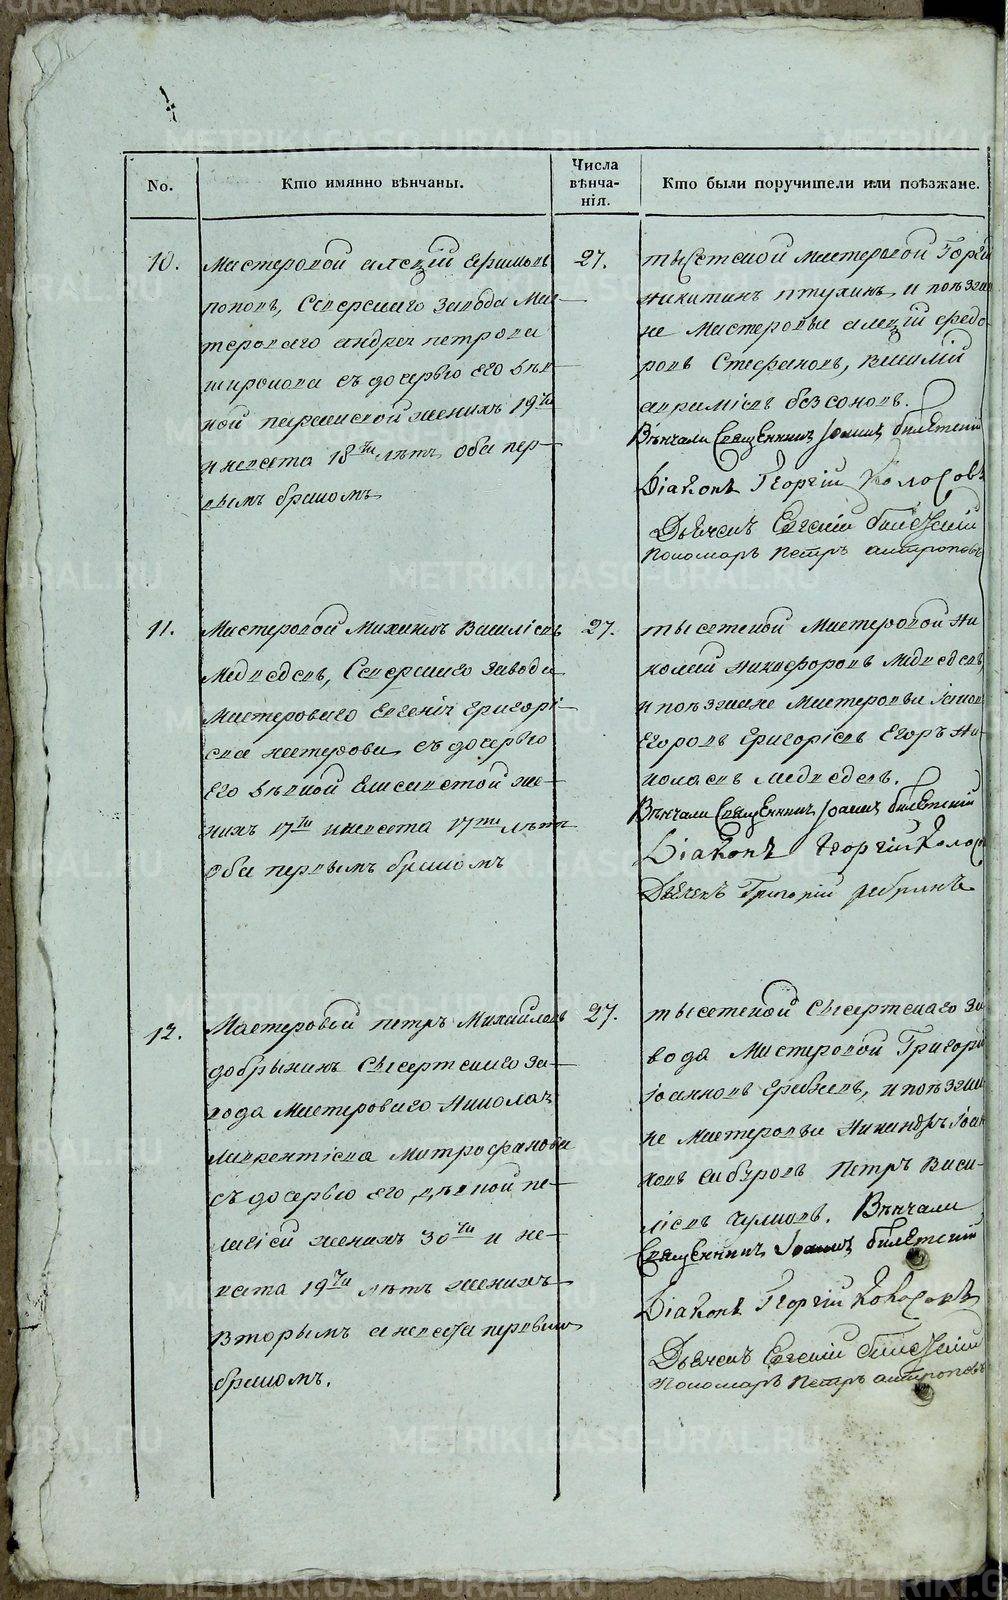 No.
Кто имянно вѣнчаны.
Числа
вѣнча-
нія.
Кто были поручители или поѣзжане.
10.
Мастеровой Алезій Ефимовъ
поповъ, Северскаго Завода Мас-
терового Андрея петрова
широкова съ дочерью его дѣв-
ной парасковой женихъ 19ти
и невеста 18ти лѣтъ оба пер-
вымъ бракомъ
27.
тысетской мастеровой Горгій
Никитинъ птухинъ и поѣзжа
не Мастеровые Алезій федо-
ровъ Стефановъ, василій
авраміевъ безсоновъ.
Вѣнчали Священникъ Іоаннъ билетскій
Діаконъ Георгій Колосовъ
Дьячекъ Евгеній билетскій
Пономарь Петръ антроповъ
11.
Мастеровой Михаилъ Василіевъ
Медведевъ, Северскаго завода
Мастероваго Евгенія григорі-
ева нестерова съ дочерью
Его дѣвной Елисаветой же-
нихъ 17ти и невеста 17ти лѣтъ
Оба первымъ бракомъ
27.
тысетской Мастеровой Ни
колай никифоровъ Медведевъ,
и поѣзжане Мастеровыи
Егоровъ григоріевъ Егоръ Ни-
колаевъ медведевъ.
Вѣнчали Священникъ Іоаннъ билетскій
Діаконъ Георгій Колосо
Дьячекъ Григорій ребринъ
12.
Мастеровый петръ Михайловъ
добрынинъ Сысертскаго за-
вода Мастероваго Николая
лаврентіева Митрофанова
съ дочерью его дѣвной пе-
лагіей женихъ 30ти и не-
веста 19ти лѣтъ женихъ
вторымъ а невеста первымъ
бракомъ.
27.
тысетской Сысертскаго За
вода Мастеровой Григорій
Іоанновъ гребневъ, и поѣзжа
не Мастеровыи Никандръ Іоан
новъ сибуровъ Петръ васи-
ліевъ чулковъ. Вѣнчали
Священникъ Іоаннъ билетскій
Діаконъ Георгій Колосовъ
Дьячекъ Евгеній билетскій
Пономарь Петръ антроповъ
METRIKI.GASO-URAL.RU